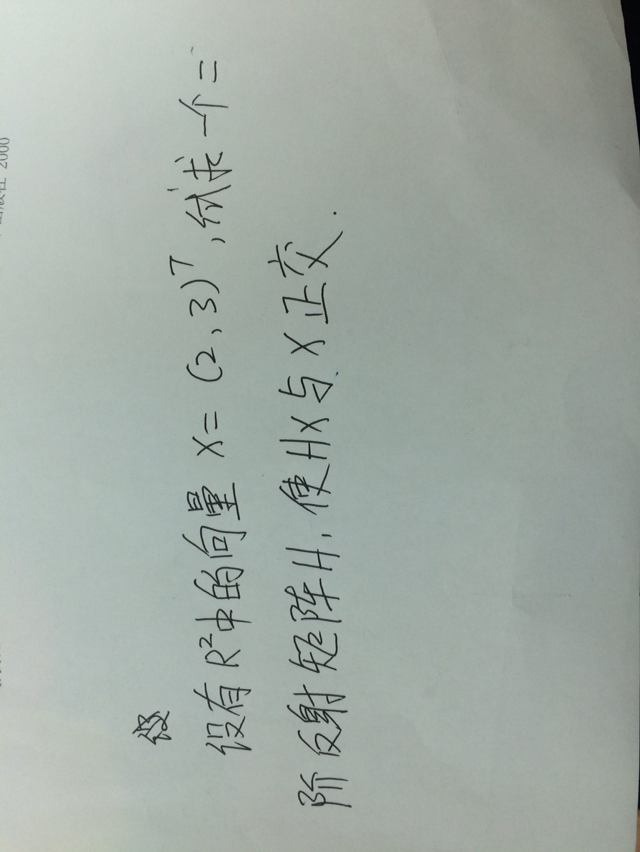 设
设有R²中的向量 X=(2,3)ᵀ,试求一个二
阶反射矩阵H,使HX与X正交.
2000